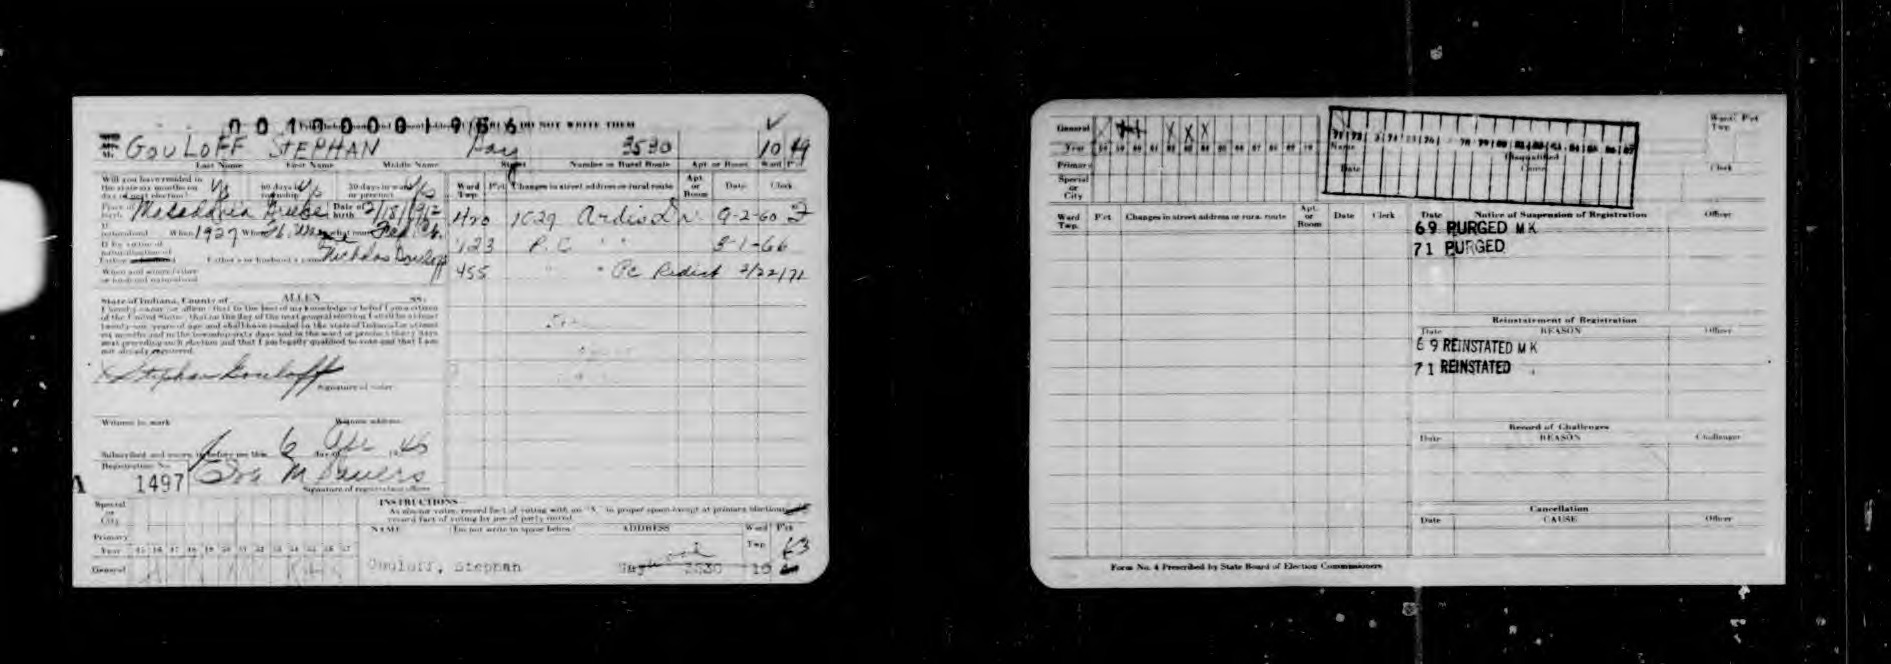 0 0 1 0 0 0 0 1 9 5 6 DO NOT WRITE THEM
GOULOFF STEPHAN 3530 10 49
Last Name First Name Middle Name Street Number or Rural Route Apt. or Room Ward Pct
Will you have resided in
the state six months on Yes 60 days in Yes 30 days in ward Yes
day of next election? township or precinct
Place of birth Macedonia Greece Date of birth 2/15/1912
If naturalized When 1927 Where Ft. Wayne what court Fed. Ct.
If by virtue of
naturalization of
Father Father's or husband's name Nicholas Gouloff
When and where father
or husband naturalized
Ward Twp. Pct. Changes in street address or rural route Apt. or Room Date Clerk
420 1029 Ardis Dr. 9-2-60
123 P.C. " " 3-1-66
455 " " Pc Redist 2/22/71
State of Indiana, County of ALLEN ss.
I hereby swear (or affirm) that to the best of my knowledge or belief I am a citizen
of the United States, that on the day of the next general election I shall be at least
twenty-one years of age and shall have resided in the state of Indiana for at least
six months and in the township sixty days and in the ward or precinct thirty days
next preceding such election and that I am legally qualified to vote and that I am
not already registered.
X Stephan Gouloff
Signature of voter
Witness to mark Witness address
Subscribed and sworn to before me this 6 day of 1946
Registration No.
A 1497
Signature of registration officer
INSTRUCTIONS
As absent voter, record fact of voting with an "A" in proper space except at primary elections
record fact of voting by use of party voted.
NAME (Do not write in space below) ADDRESS Ward Twp. Pct
Special or City
Primary
Year 45 46 47 48 49 50 51 52 53 54 55 56 57
General
Gouloff, Stephan 3530 10 63
General X X X X
Year 58 59 60 61 62 63 64 65 66 67 68 69 70
Primary
Special or City
Name Disqualified
Date Cause
Ward Twp. Pct
Clerk
Ward Twp. Pct Changes in street address or rural route Apt. or Room Date Clerk
Date Notice of Suspension of Registration Officer
69 PURGED M K
71 PURGED
Reinstatement of Registration
Date REASON Officer
69 REINSTATED M K
71 REINSTATED
Record of Challenges
Date REASON Challenger
Cancellation
Date CAUSE Officer
Form No. 4 Prescribed by State Board of Election Commissioners